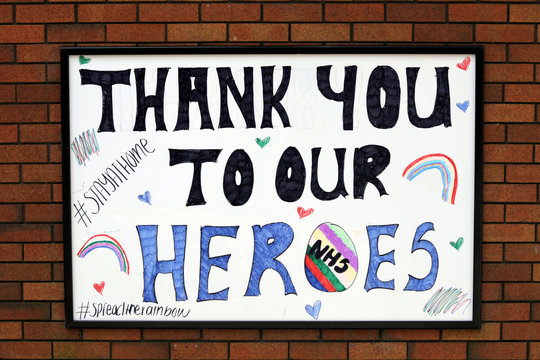 THANK YOU
#STAYATHOME
TO OUR
HEROES
NHS
#spreadtherainbow